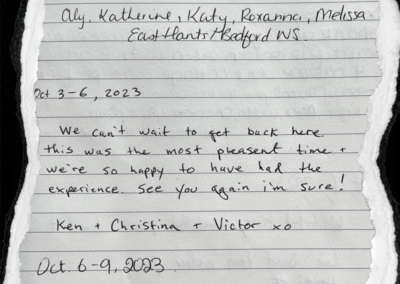 Aly, Katherine, Katy, Roxanna, Melissa
East Hants / Bedford NS.
Oct 3-6, 2023
We can't wait to get back here.
this was the most pleasent time +
we're so happy to have had the
experience. See you again i'm sure!
Ken + Christina + Victor xo
Oct. 6-9, 2023